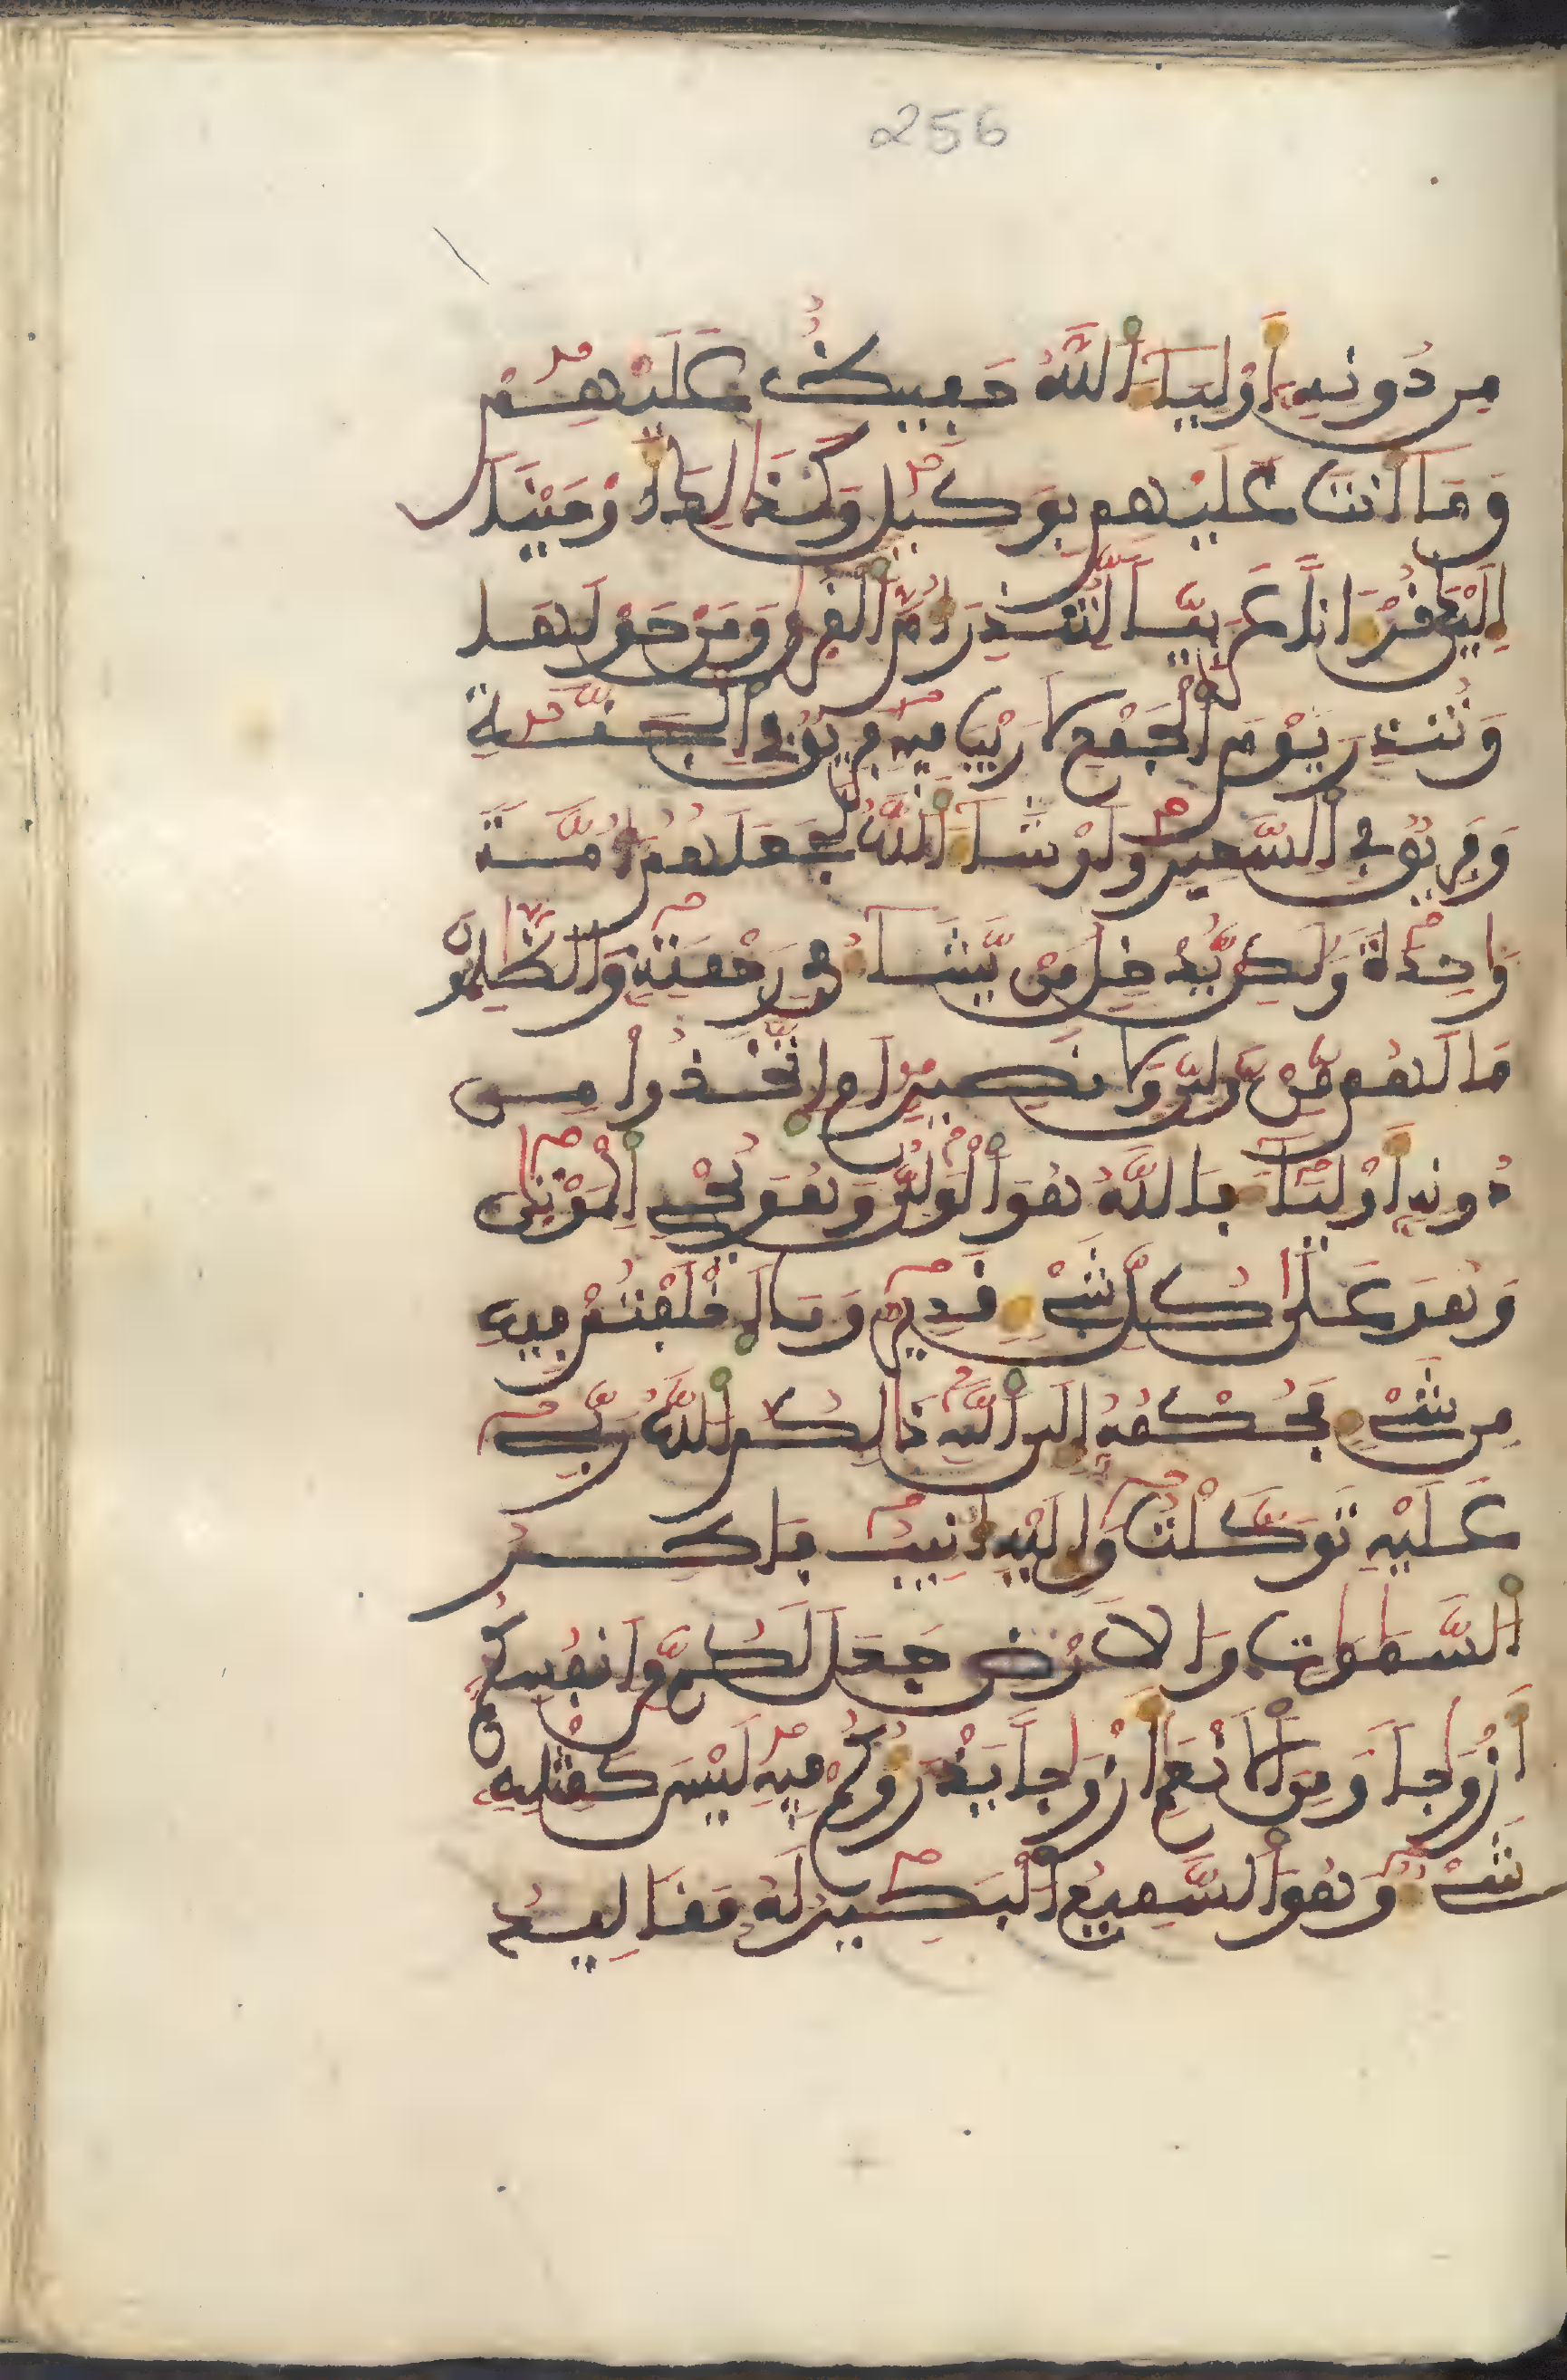 256
مِن دُونِهِ أَوْلِيَآءَ اَللَّهُ حَفِيظٌ عَلَيْهِمْ
وَمَآ أَنتَ عَلَيْهِم بِوَكِيلٍ وَكَذَٰلِكَ أَوْحَيْنَآ
إِلَيْكَ قُرْءَاناً عَرَبِيّاً لِّتُنذِرَ أُمَّ اَلْقُرَىٰ وَمَنْ حَوْلَهَا
وَتُنذِرَ يَوْمَ اَلْجَمْعِ لَا رَيْبَ فِيهِ فَرِيقٌ فِي اِلْجَنَّةِ
وَفَرِيقٌ فِي اِلسَّعِيرِ وَلَوْ شَآءَ اَللَّهُ لَجَعَلَهُمُ أُمَّةً
وَٰحِدَةً وَلَٰكِن يُّدْخِلُ مَنْ يَّشَآءُ فِي رَحْمَتِهِ وَالظَّٰلِمُونَ
مَا لَهُم مِّنْ وَّلِيٍّ وَلَا نَصِيرٍ أَمِ اِتَّخَذُواْ مِن
دُونِهِ أَوْلِيَآءَ فَاللَّهُ هُوَ اَلْوَلِيُّ وَهُوَ يُحْيِ اِلْمَوْتَىٰ
وَهُوَ عَلَىٰ كُلِّ شَيْءٍ قَدِيرٌ وَمَا اَخْتَلَفْتُمْ فِيهِ
مِن شَيْءٍ فَحُكْمُهُ إِلَى اَللَّهِ ذَٰلِكُمُ اُللَّهُ رَبِّي
عَلَيْهِ تَوَكَّلْتُ وَإِلَيْهِ أُنِيبُ فَاطِرُ
اُلسَّمَٰوَٰتِ وَالَارْضِ جَعَلَ لَكُم مِّنَ اَنفُسِكُمُ
أَزْوَٰجاً وَمِنَ اَلَانْعَٰمِ أَزْوَٰجاً يَذْرَؤُكُمْ فِيهِ لَيْسَ كَمِثْلِهِ
شَيْءٌ وَهُوَ اَلسَّمِيعُ اُلْبَصِيرُ لَهُ مَقَالِيدُ